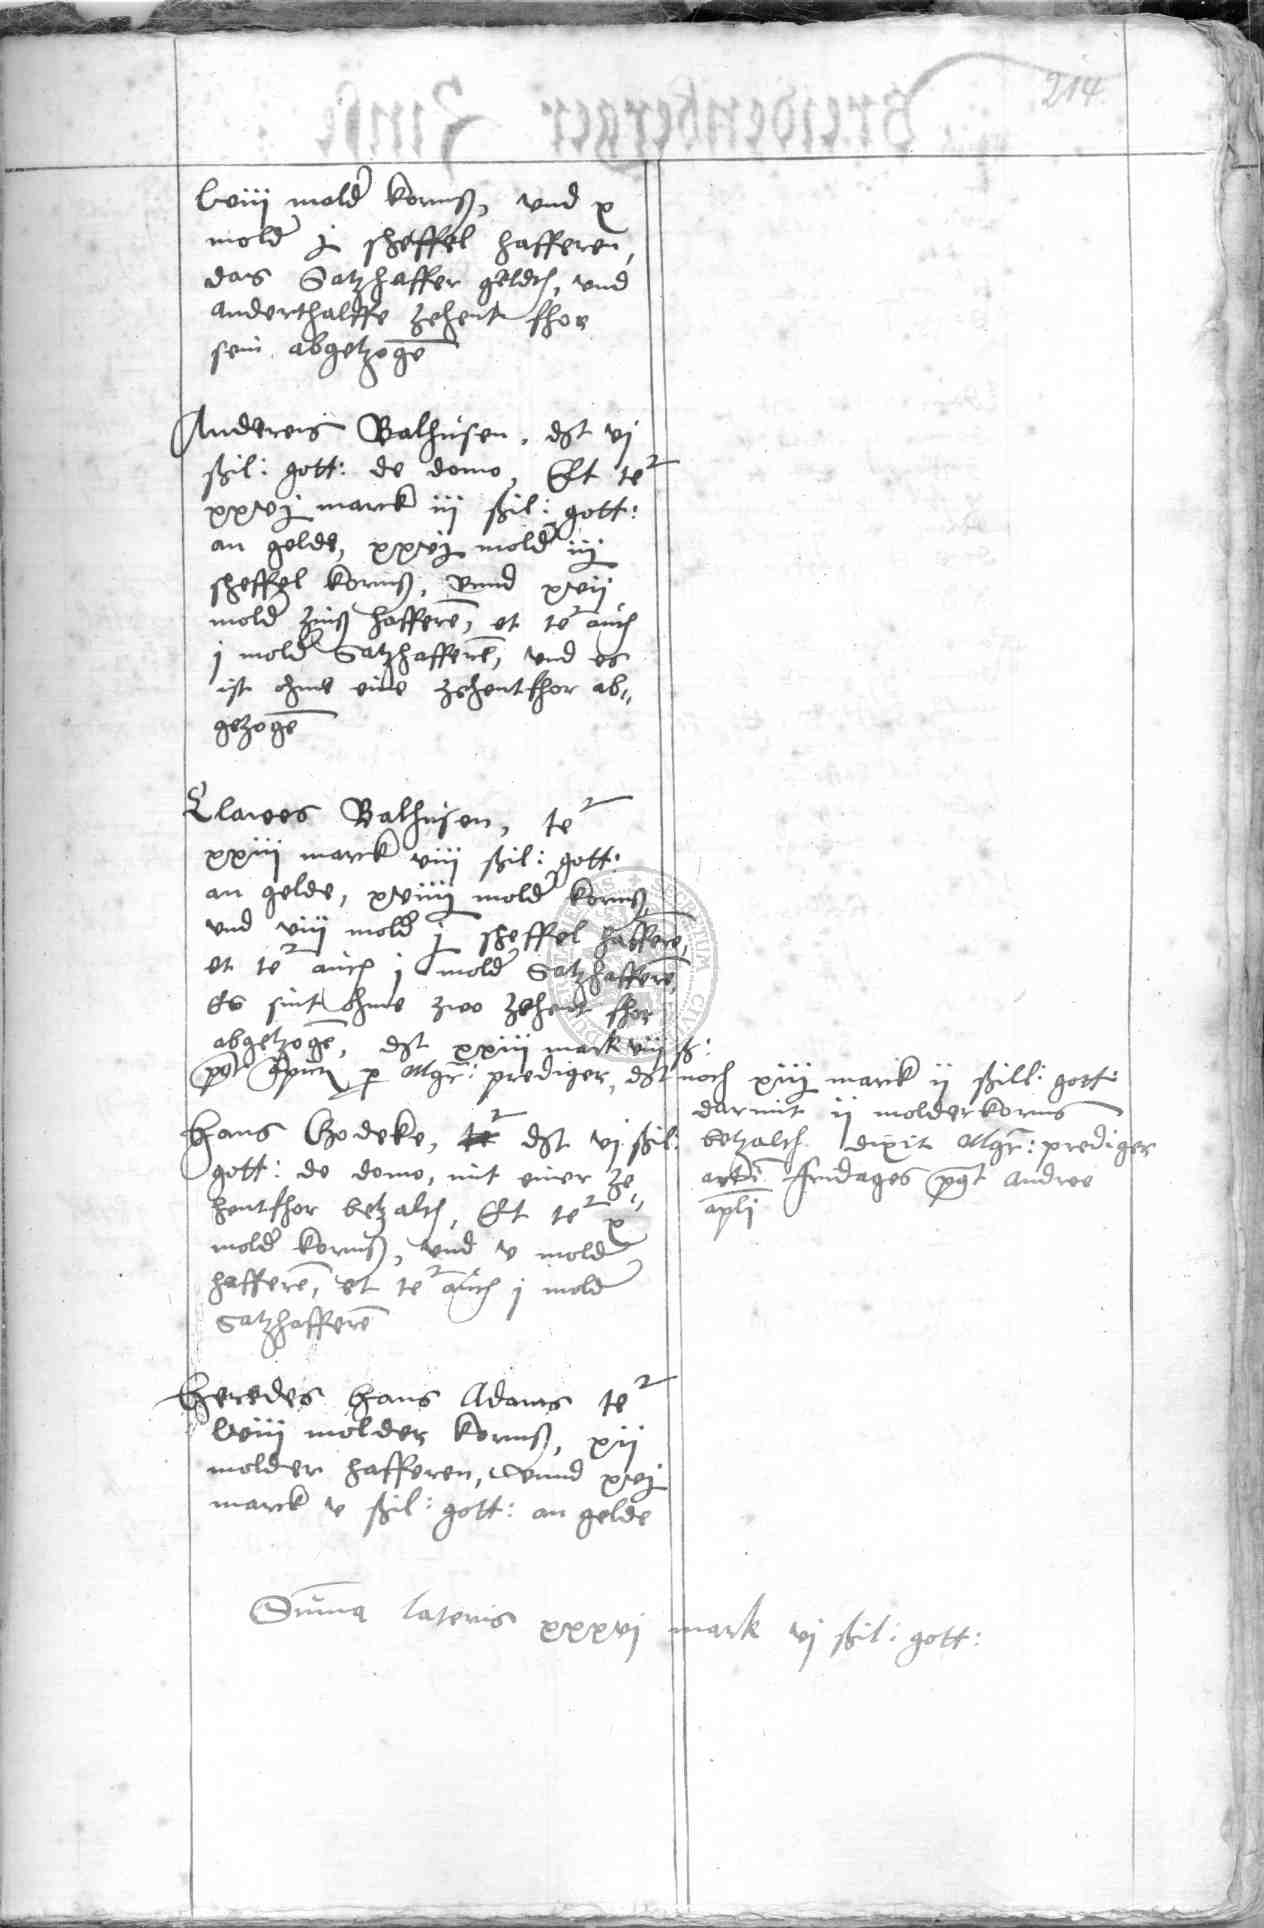 214
lviii mold korns, vnd x
mold j scheffel hafferen,
das Satzhaffer geldt, vnd
anderthalffe zehent fhor
sein abgetzogē
Andereis Balhusen, dt vj
ßil: gott: de domo, Et te
xxvj marck iij ßil: gott:
an gelde, xxvj mold iij
scheffel korns, vnnd xvij
mold zinß hafferē, et te auch
j mold Satzhafferē, vnd es
ist ohme eine zehentfhor ab„
gezogē
Clawes Balhusen, te
xxiii marck viii ßil: gott:
an gelde, xviiij mold korns,
vnd viij mold j scheffel hafferē,
et te auch j mold Satzhafferē,
Es sint ohme zwo zehent fhor
abgetzogē, dt xxiii mark viij ß:
p Mgr: prediger, dt noch xiij marck ij ßill: gott:
darmit ij molder korns
betzalt dixit Mgr: prediger
fridages Andree
apli
Hans Godeke, dt vj ßil:
gott: de domo, mit einer ze„
hentfhor betzalt, Et te x
mold korns, vnd v mold
hafferē, et te auch j mold
Satzhafferē
Heredes Hans Adams te
lviii molder korns, xij
molder hafferen, vnnd xvj
marck v ßil: gott: an gelde
Suma lateris xxxvj mark vj ßil: gott: